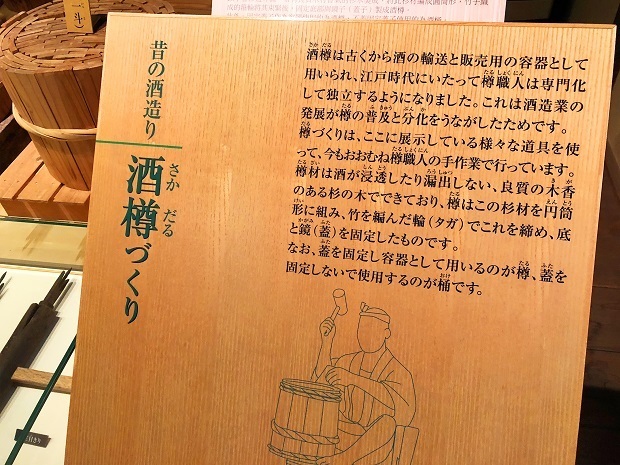 一斗
昔の酒造り
酒樽づくり
酒樽は古くから酒の輸送と販売用の容器として
用いられ、江戸時代にいたって樽職人は専門化
して独立するようになりました。これは酒造業の
発展が樽の普及と分化をうながしたためです。
樽づくりは、ここに展示している様々な道具を使
って、今もおおむね樽職人の手作業で行っています。
樽材は酒が浸透したり漏出しない、良質の木香
のある杉の木でできており、樽はこの杉材を円筒
形に組み、竹を編んだ輪(タガ)でこれを締め、底
と鏡(蓋)を固定したものです。
なお、蓋を固定し容器として用いるのが樽、蓋を
固定しないで使用するのが桶です。